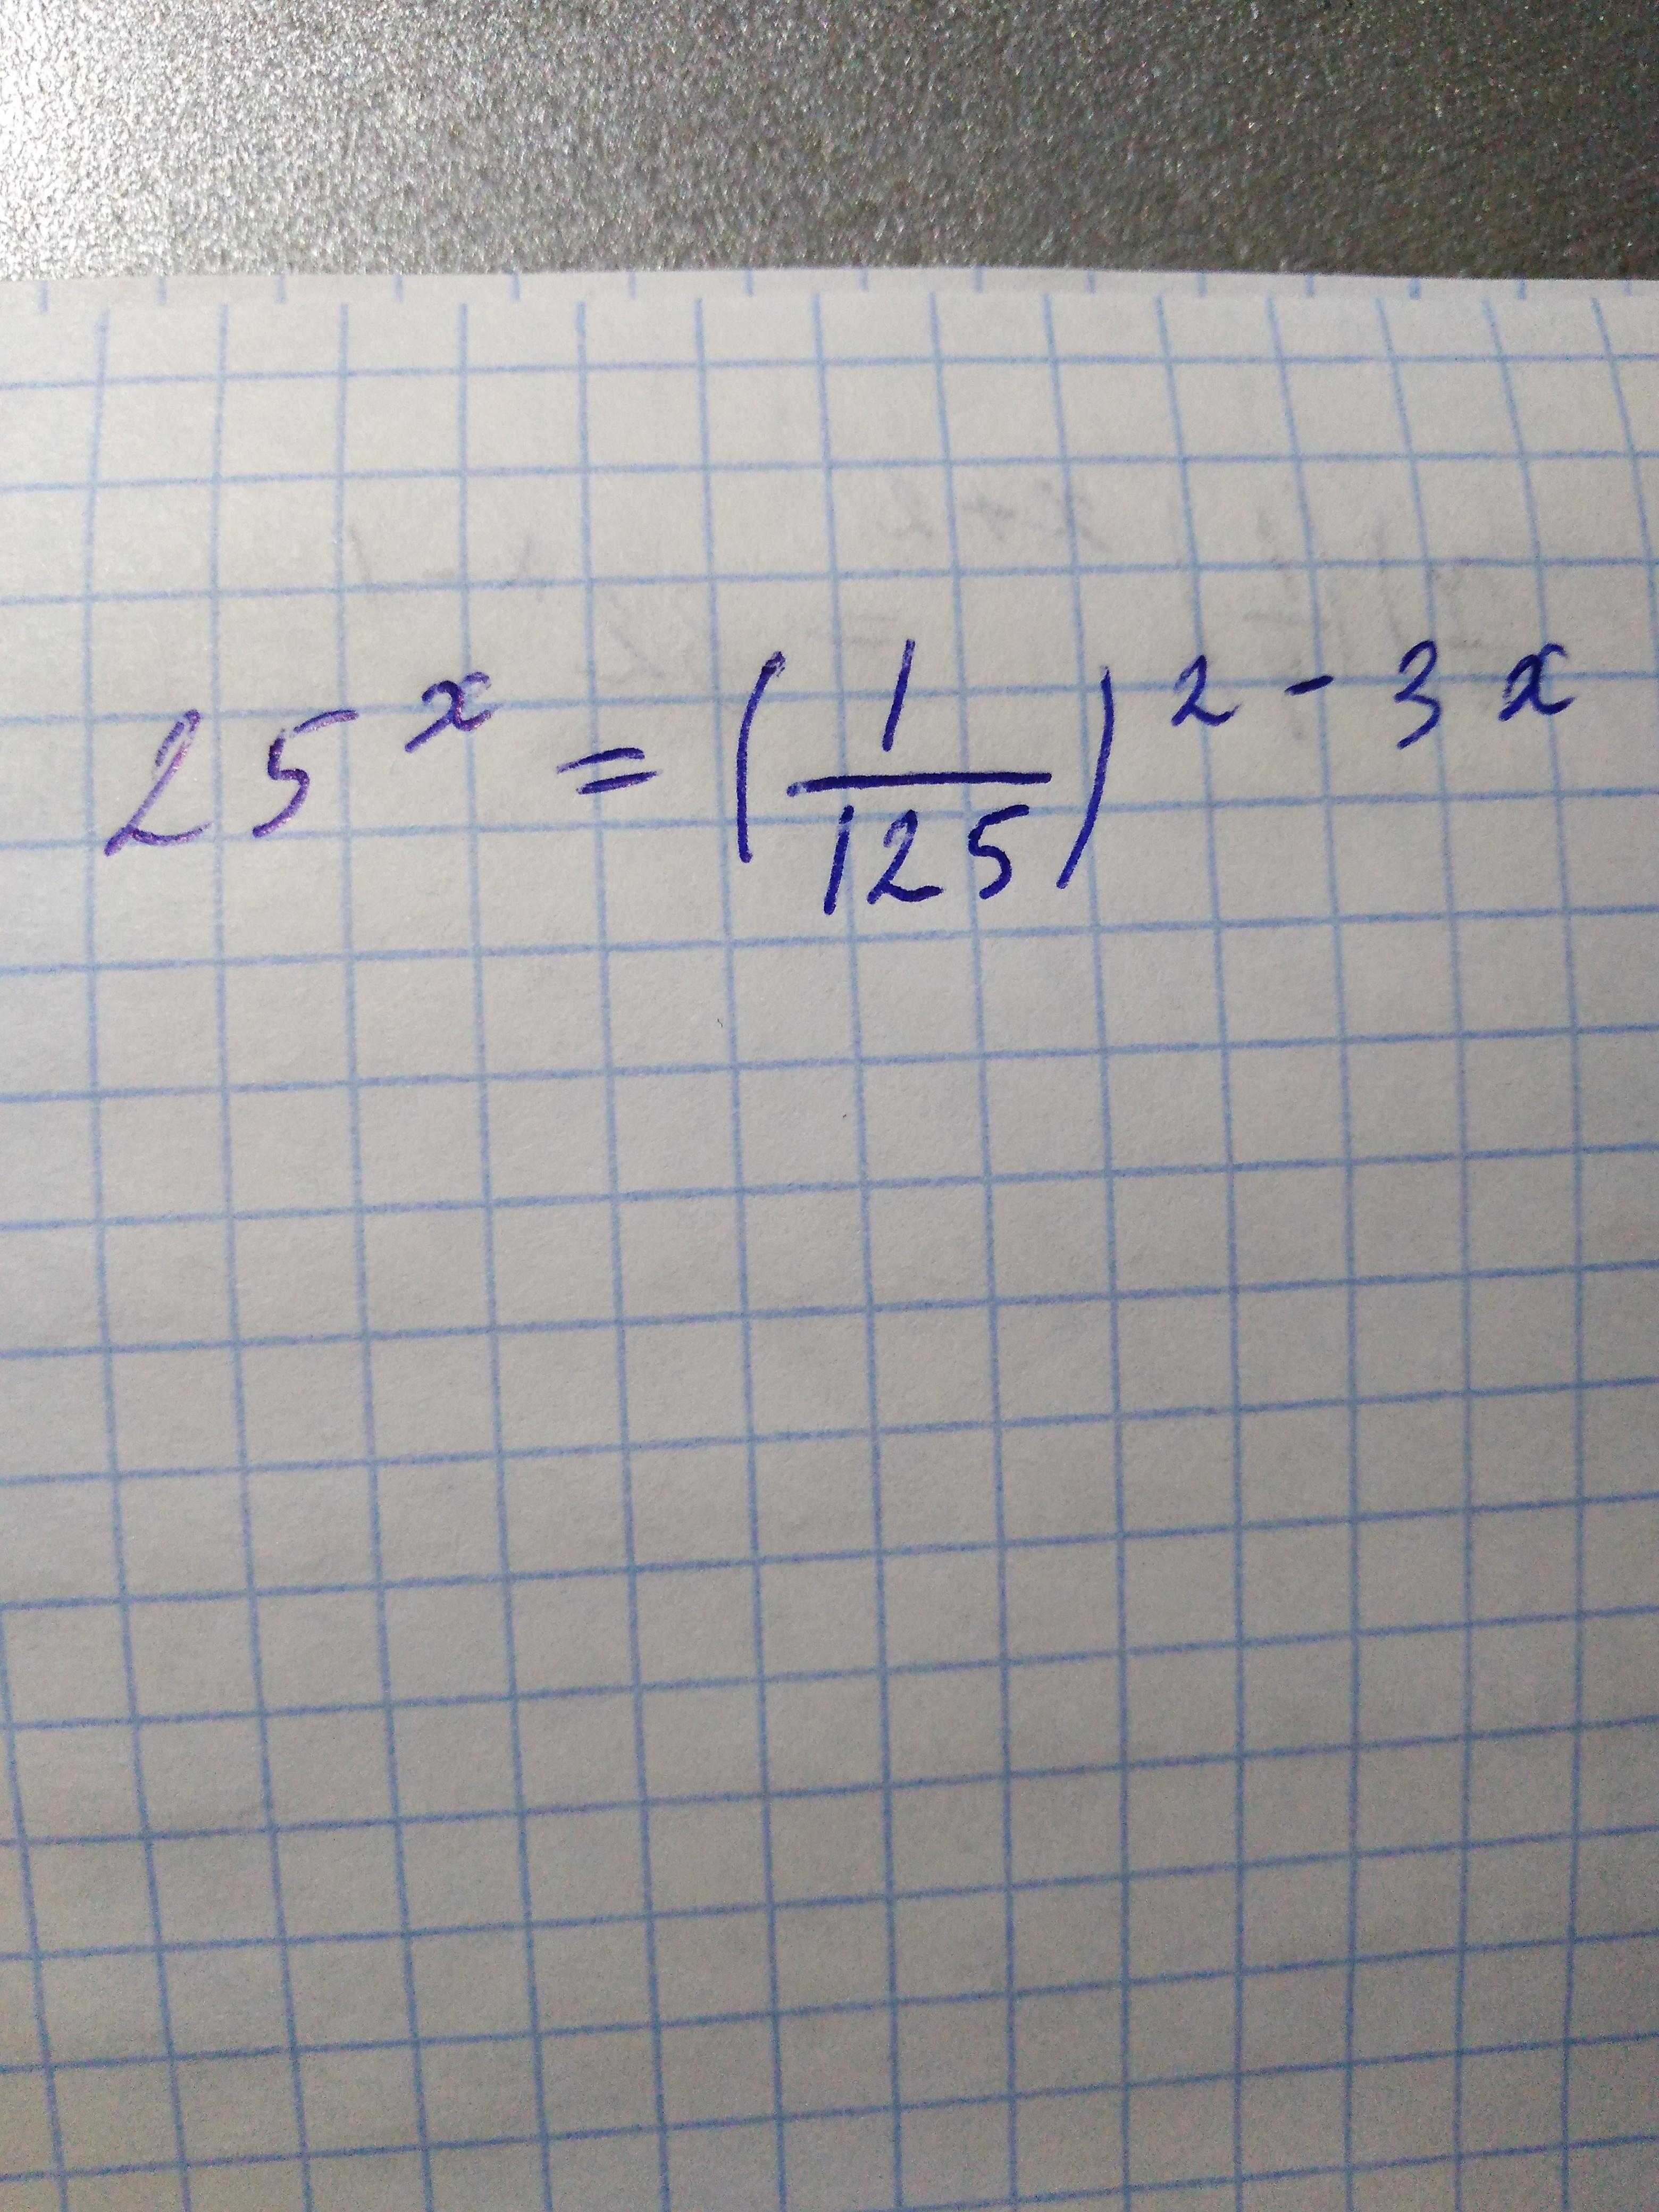 25^x = (1/125)^{2 - 3x}